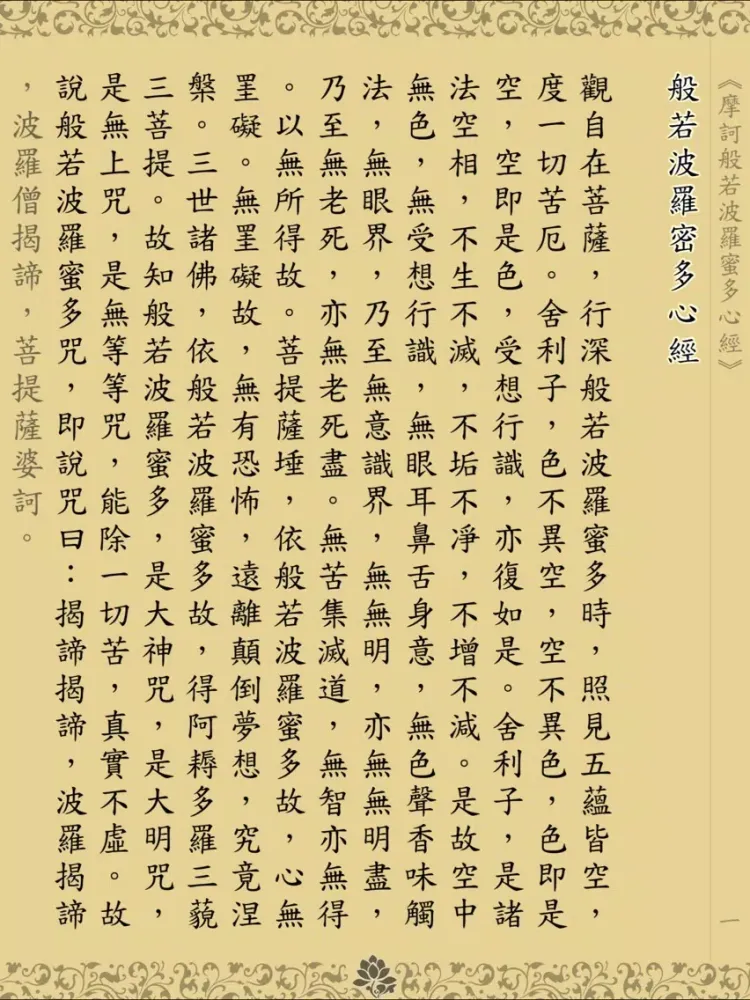 《摩訶般若波羅蜜多心經》
一
般若波羅密多心經
觀自在菩薩，行深般若波羅蜜多時，照見五蘊皆空，
度一切苦厄。舍利子，色不異空，空不異色，色即是
空，空即是色，受想行識，亦復如是。舍利子，是諸
法空相，不生不滅，不垢不凈，不增不減。是故空中
無色，無受想行識，無眼耳鼻舌身意，無色聲香味觸
法，無眼界，乃至無意識界，無無明，亦無無明盡，
乃至無老死，亦無老死盡。無苦集滅道，無智亦無得
。以無所得故。菩提薩埵，依般若波羅蜜多故，心無
罣礙。無罣礙故，無有恐怖，遠離顛倒夢想，究竟涅
槃。三世諸佛，依般若波羅蜜多故，得阿耨多羅三藐
三菩提。故知般若波羅蜜多，是大神咒，是大明咒，
是無上咒，是無等等咒，能除一切苦，真實不虛。故
說般若波羅蜜多咒，即說咒曰：揭諦揭諦，波羅揭諦
，波羅僧揭諦，菩提薩婆訶。